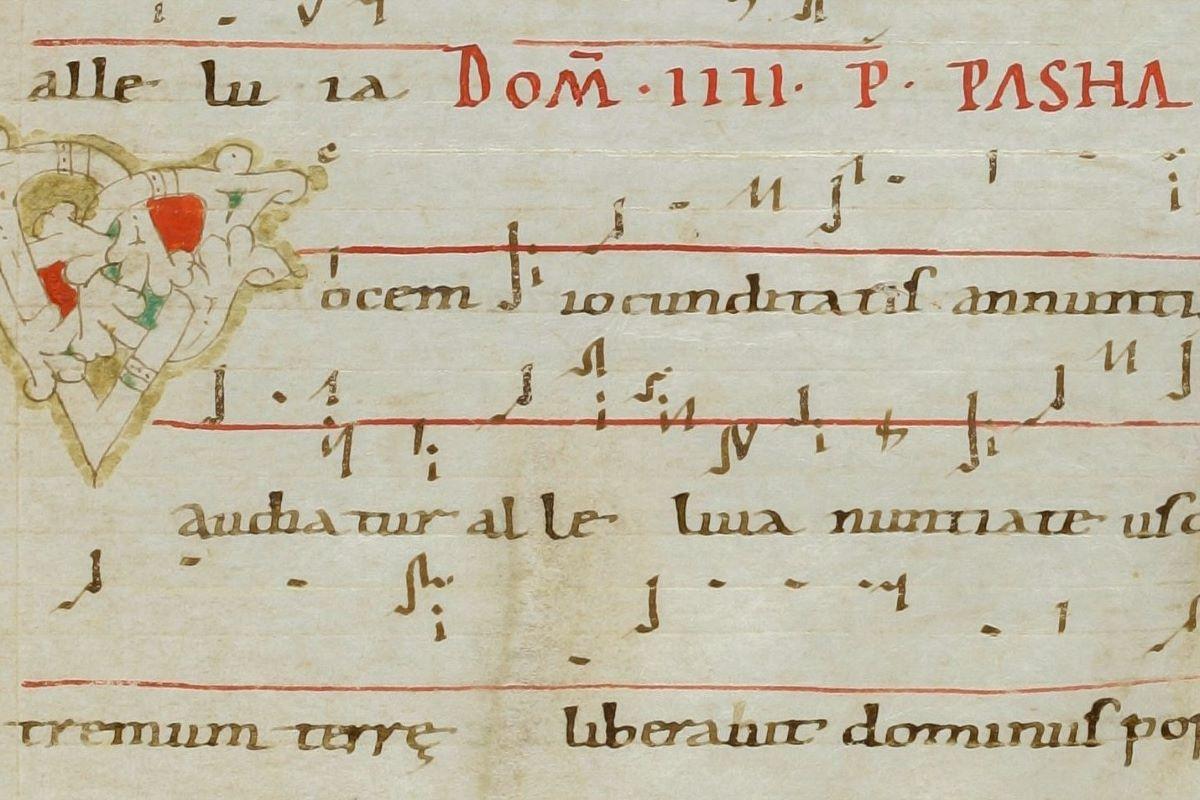 alle lu ia DOM̄ · IIII · P · PASHA
Vocem iocunditatis annunti
audiatur alle luia nuntiate usq
tremum terrę liberauit dominus pop